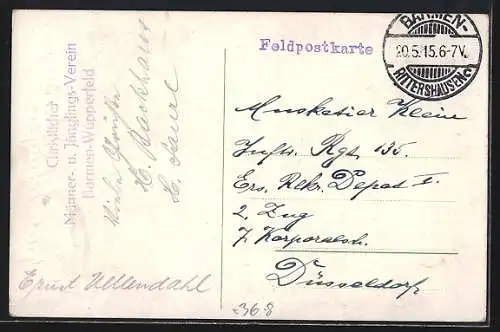 Christlicher
Männer- u. Jünglings-Verein
Barmen-Wupperfeld
Viele Grüße
H. Backhaus
H.
Ernst Uellendahl
Feldpostkarte
BARMEN-
20.5.15.6-7V.
RITTERSHAUSEN
Musketier Kleine
Inftr. Rgt. 135.
Ers. Rekr. Depot I.
2. Zug
7. Korporalsch.
Düsseldorf
368